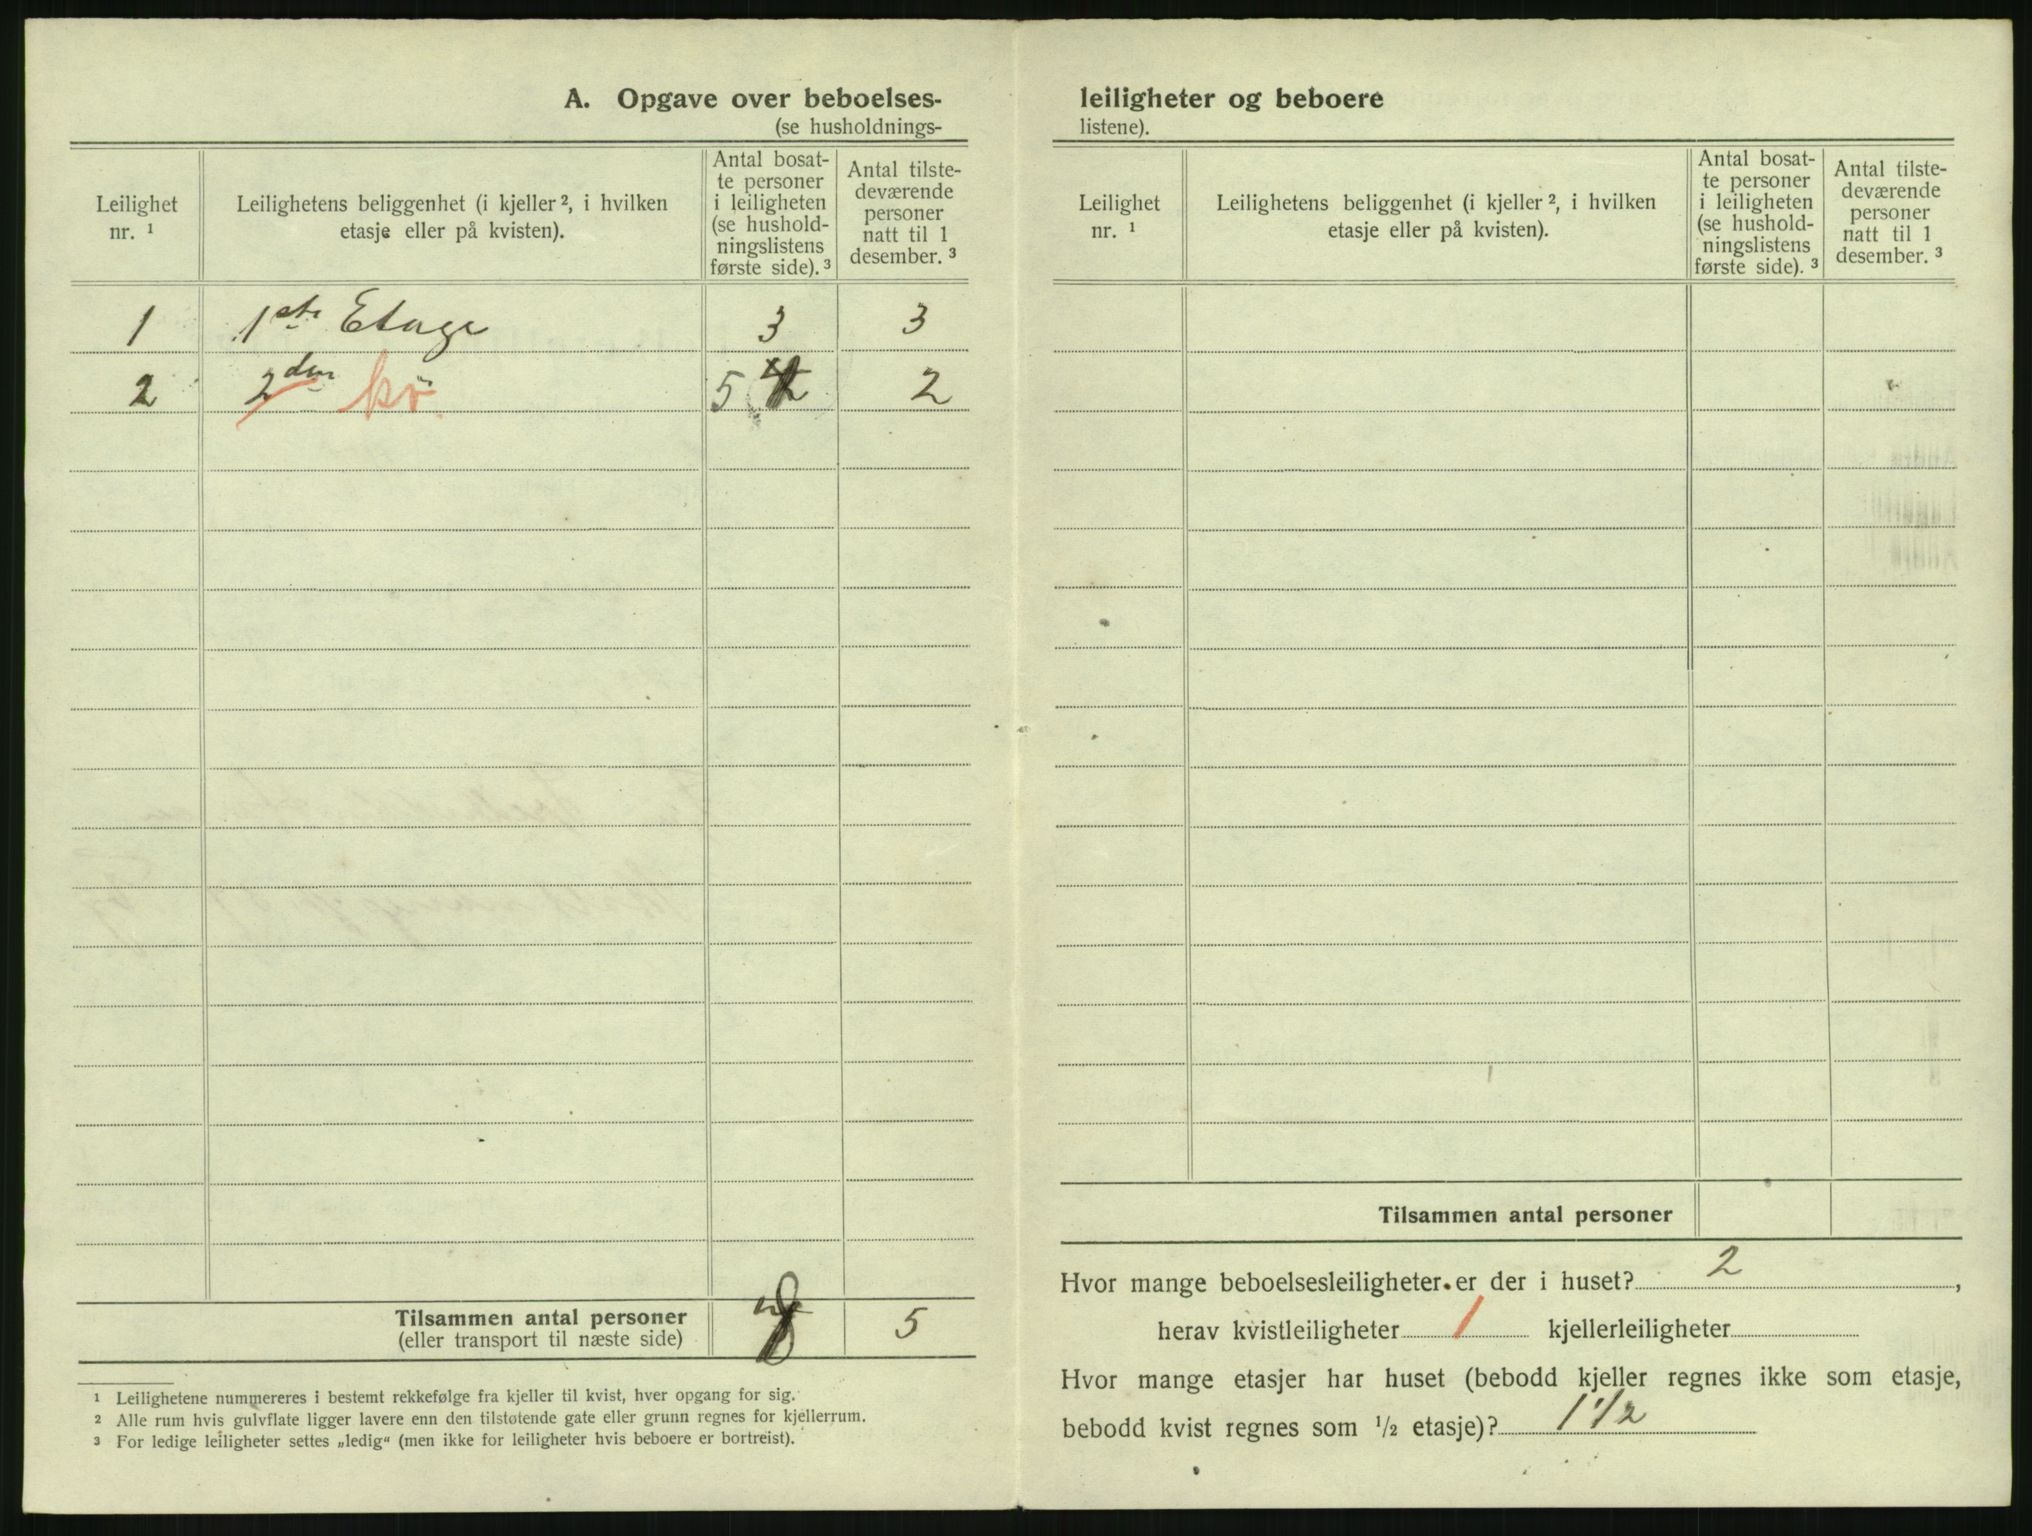 A. Opgave over beboelses-
(se husholdnings-
Leilighet nr. 1
Leilighetens beliggenhet (i kjeller 2, i hvilken etasje eller på kvisten).
Antal bosat-
te personer
i leiligheten
(se hushold-
ningslistens
første side). 3
Antal tilste-
deværende
personer
natt til 1
desember. 3
1 1ste Etage 3 3
2 2den kv. 5 2
Tilsammen antal personer 8 5
(eller transport til næste side)
1 Leilighetene nummereres i bestemt rekkefølge fra kjeller til kvist, hver opgang for sig.
2 Alle rum hvis gulvflate ligger lavere enn den tilstøtende gate eller grunn regnes for kjellerrum.
3 For ledige leiligheter settes „ledig“ (men ikke for leiligheter hvis beboere er bortreist).
leiligheter og beboere
listene).
Leilighet nr. 1
Leilighetens beliggenhet (i kjeller 2, i hvilken etasje eller på kvisten).
Antal bosat-
te personer
i leiligheten
(se hushold-
ningslistens
første side). 3
Antal tilste-
deværende
personer
natt til 1
desember. 3
Tilsammen antal personer
Hvor mange beboelsesleiligheter er der i huset? 2,
herav kvistleiligheter 1 kjellerleiligheter
Hvor mange etasjer har huset (bebodd kjeller regnes ikke som etasje,
bebodd kvist regnes som 1/2 etasje)? 1 1/2